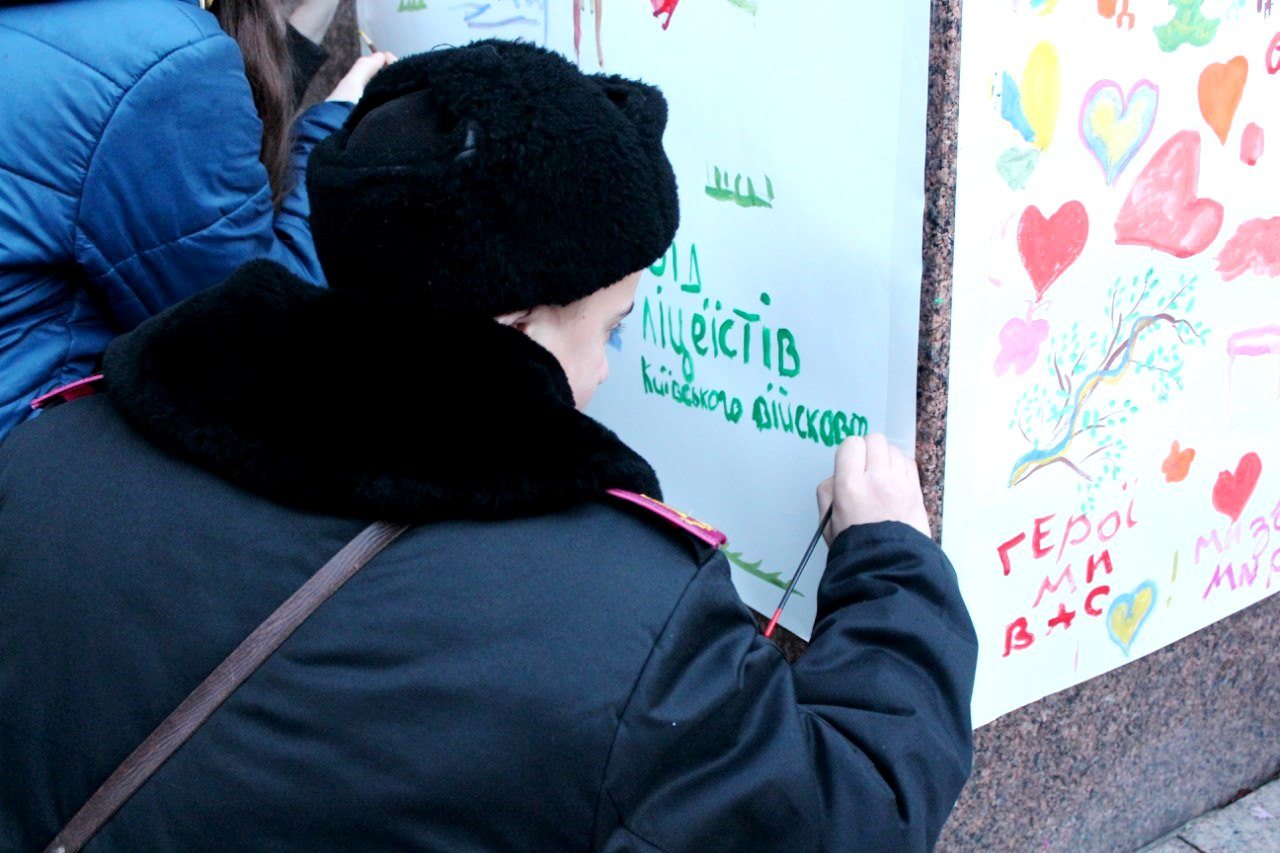 від
ліцеїстів
Київського військово
ГЕРОЇ
МИ
ВАС
!